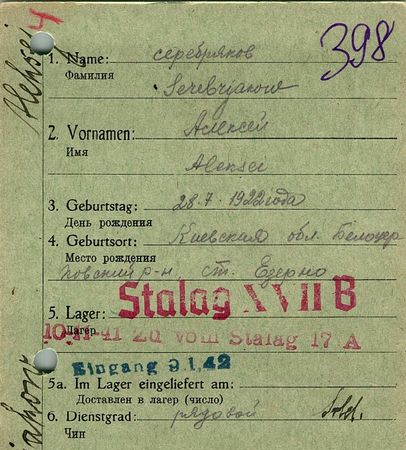 398
4
1. Name: серебряков
Фамилия
Serebrjakow
2. Vornamen: Алексей
Имя
Aleksei
3. Geburtstag: 28.7.1922 года
День рождения
4. Geburtsort: Киевская обл. Белоцер
Место рождения
ковский р-н ст. Езерно
5. Lager: Stalag XVII B
Лагерь
10-11-41 Zu vom Stalag 17 A
Eingang 9.1.42
5a. Im Lager eingeliefert am:
Доставлен в лагерь (число)
6. Dienstgrad: рядовой Sold.
Чин